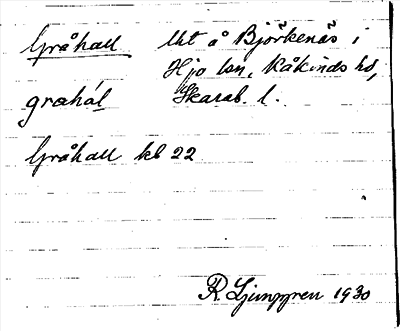 Gråhall Utt å Björkenäs i
Hjo lsn, Kåkinds hd,
grahál Skarab. l.
Gråhall kb 22
R. Ljunggren 1930